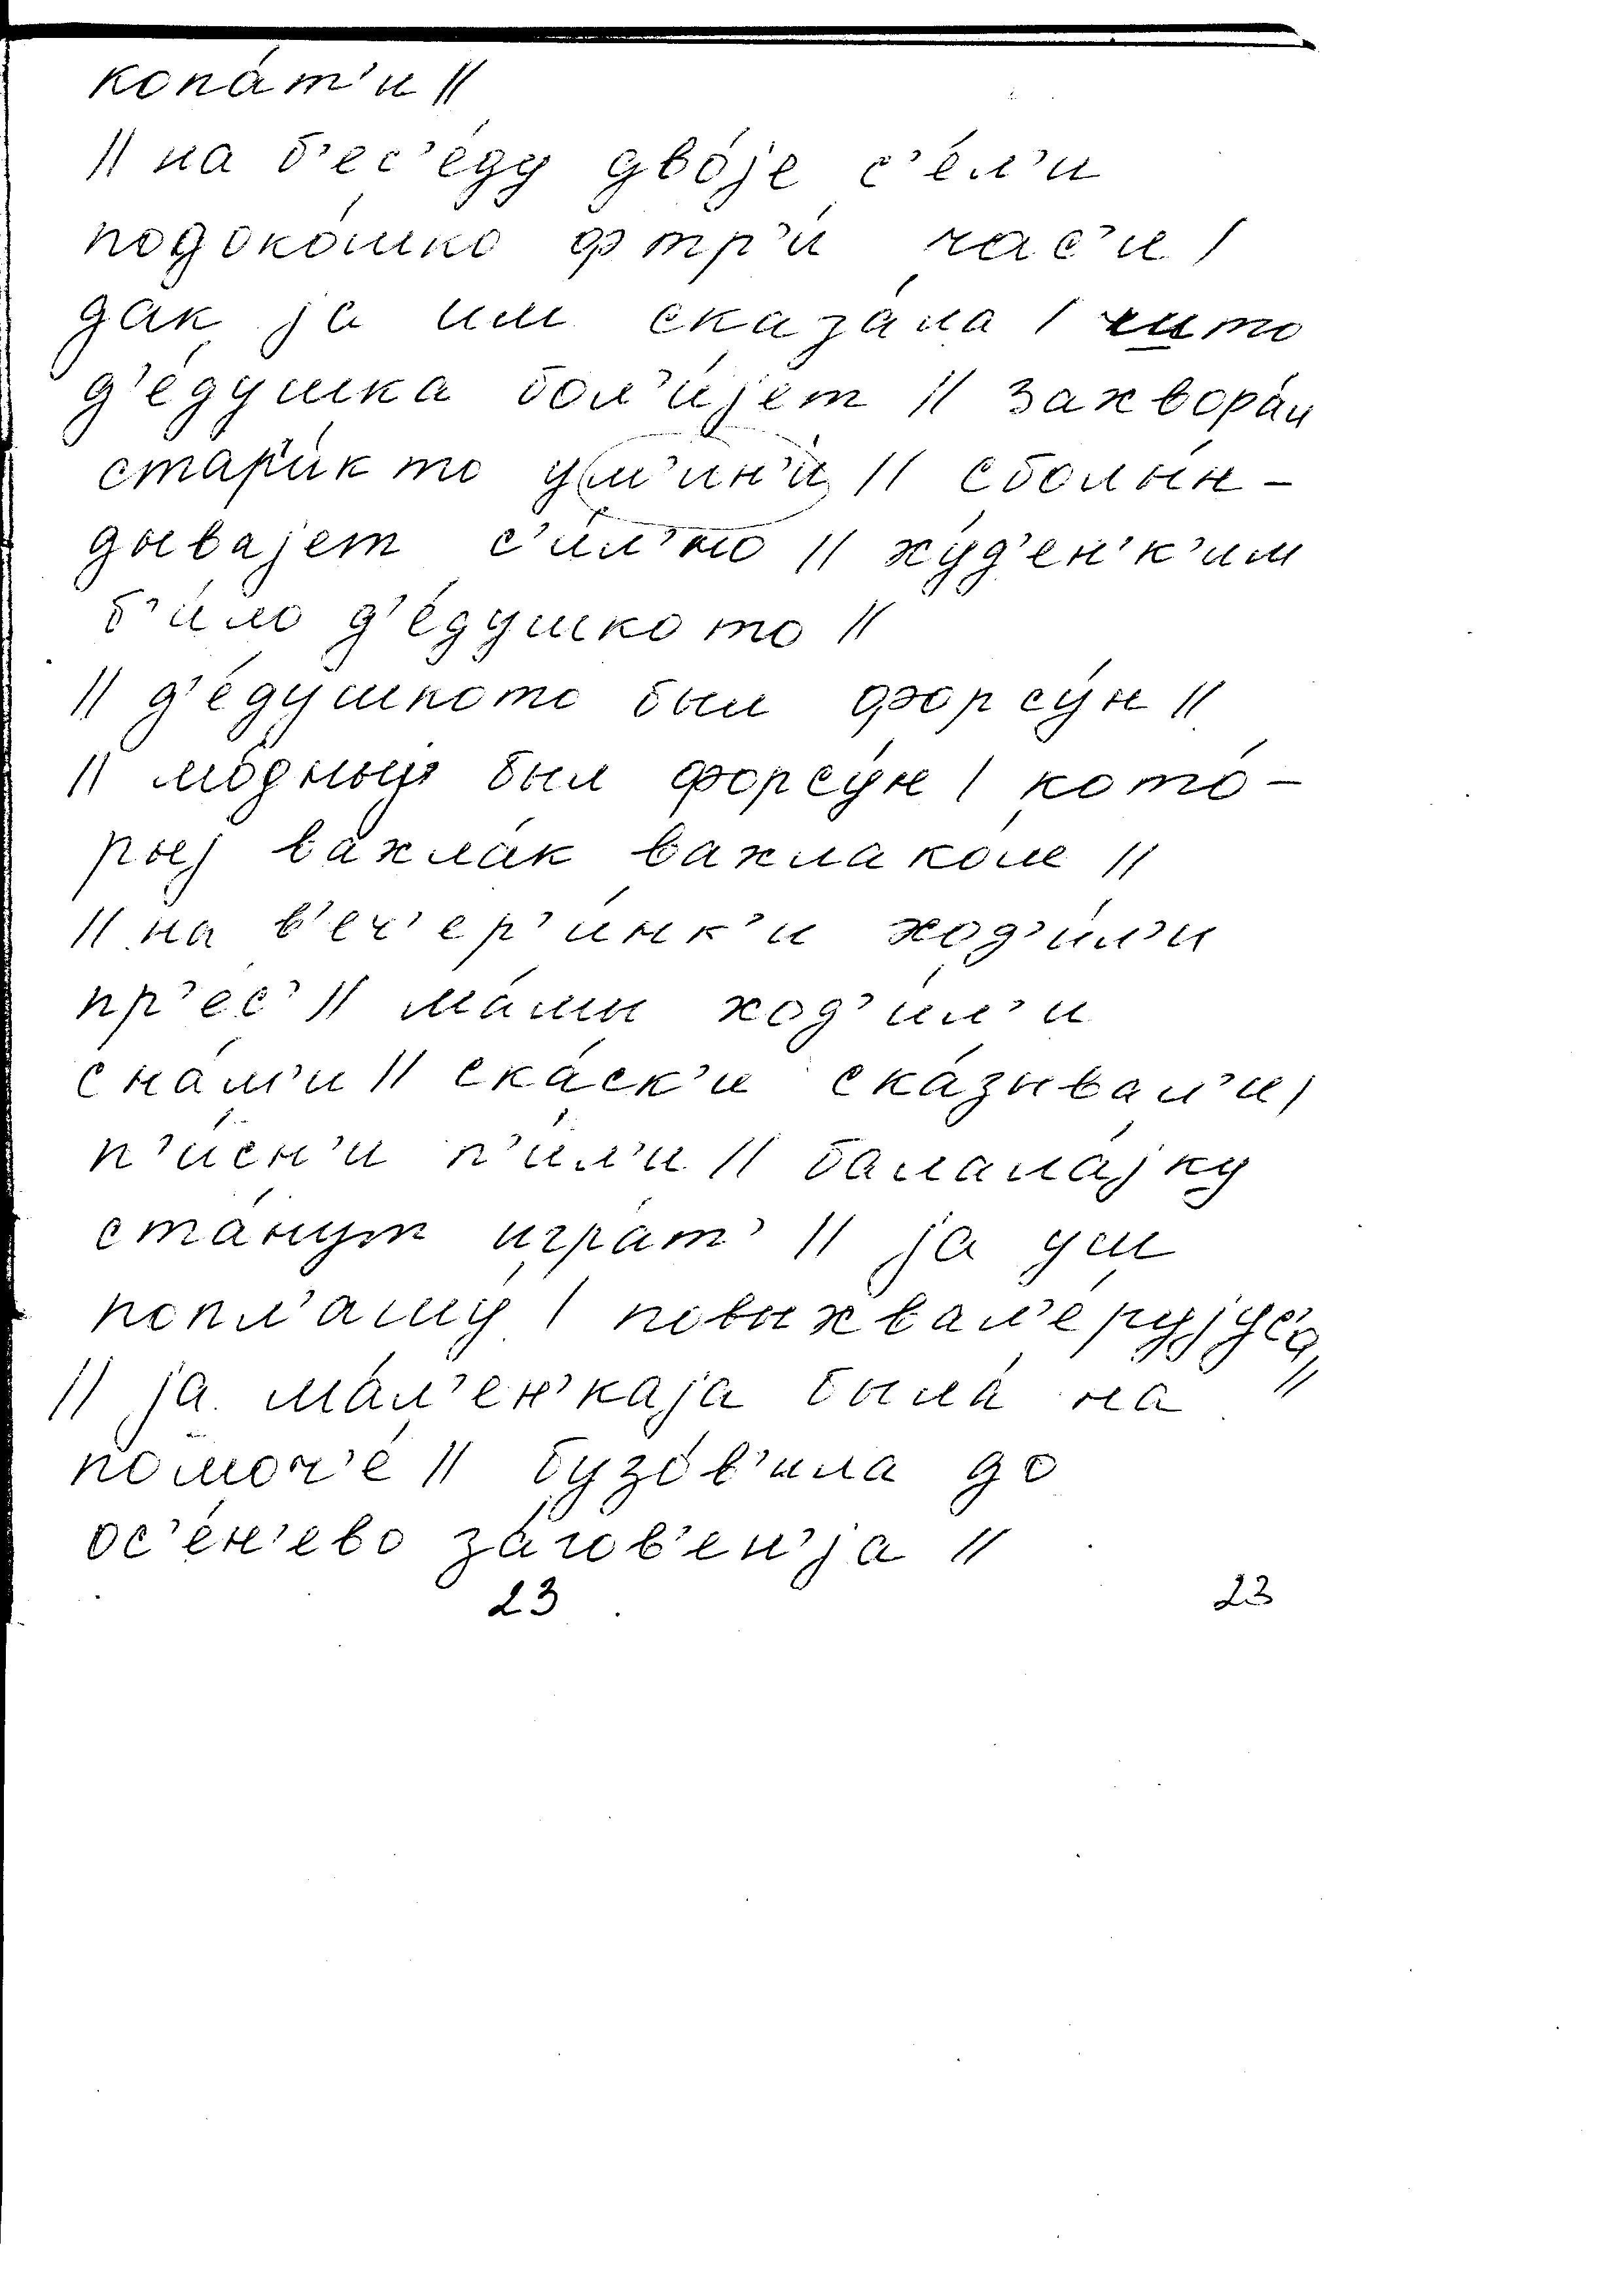 копа́т’и ||
|| на б’ес’е́ду дво́jе с’е́л’и
подоко́шко фтр’и́ час’и |
дак jа им сказа́ла | што
д’е́душка бол’и́jет || захвора́л
стар’и́к то ум’ин’и́ || сболы́н–
дывajет с’и́л’но || ху́д’ен’к’им
б’и́ло д’е́душко то ||
|| д’е́душкото был форсу́н ||
|| мо́дныj был форсу́н | кото́–
рыj вахла́к вахлако́м ||
|| на в’еч’ер’и́нк’и ход’и́л’и
пр’ес’ || ма́мы ход’и́л’и
сна́м’и || ска́ск’и ска́зывал’и |
п’и́сн’и п’и́л’и || балала́jку
ста́нут игра́т’ || jа уш
попл’ашу́ | повыхвал’е́руjус’а ||
|| jа ма́л’ен’каjа была́ на
помоч’е́ || бузо́в’ила до
ос’е́н’ево за́гов’ен’jа ||
23 23